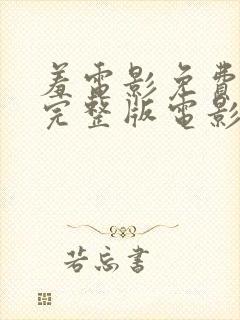 羞電影免費
完整版電影
若忘書